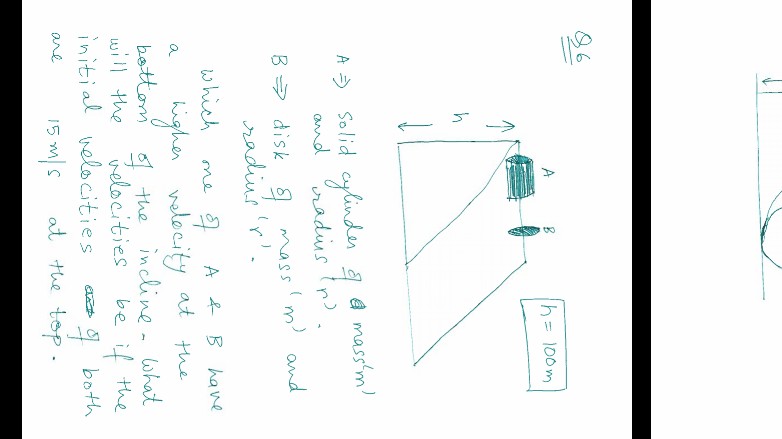 Q6
h = 100m
A
B
h
A ⇒ Solid cylinder of mass 'm'
and radius 'r'.
B ⇒ disk of mass 'm' and
radius 'r'.
which one of A & B have
a higher velocity at the
bottom of the incline. What
will the velocities be if the
initial velocities of both
are 15 m/s at the top.